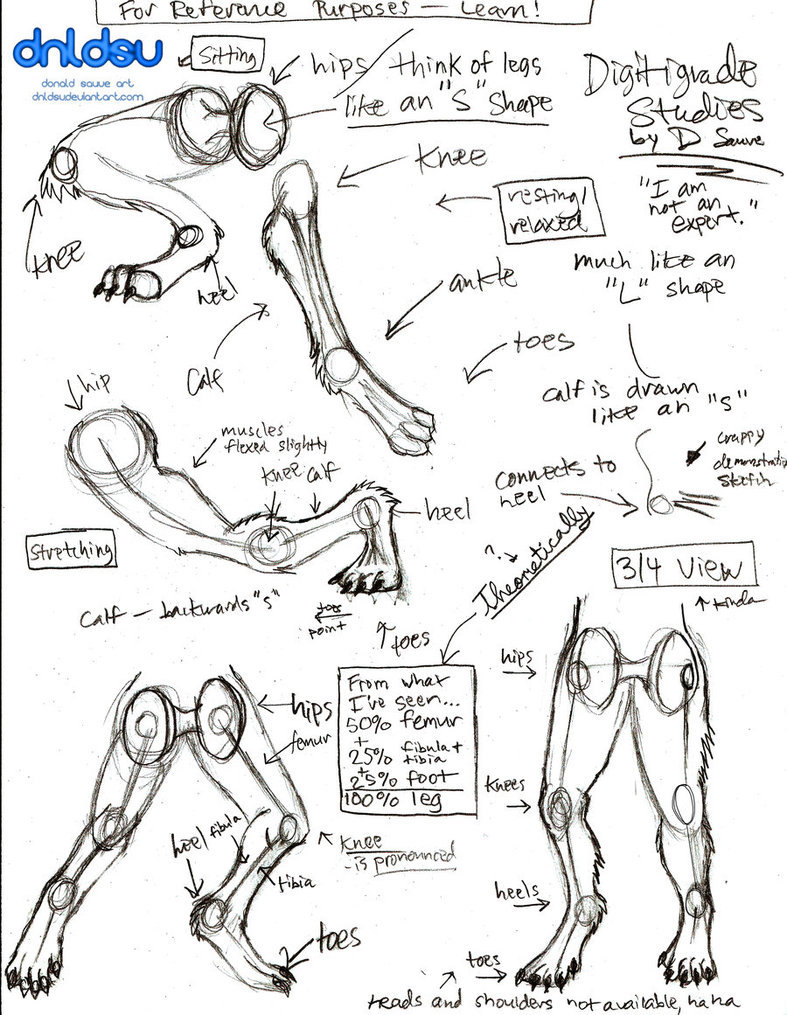 For Reference Purposes — Learn!
dnldsu
donald sauve art
dnldsu.deviantart.com
Sitting
hips
think of legs
like an "S" shape
Digitigrade
Studies
by D Sauve
"I am
not an
expert."
Knee
resting/
relaxed
much like an
"L" shape
knee
heel
Calf
ankle
toes
calf is drawn
like an "S"
crappy
demonstration
sketch
connects to
heel
hip
muscles
flexed slightly
Knee
calf
heel
Stretching
calf — backwards "S"
toes
point
toes
?
Theoretically
3/4 view
kinda
From what
I've seen...
50% femur
+
25% fibula +
tibia
+
25% foot
100% leg
hips
femur
heel
fibula
tibia
knee
- is pronounced
toes
hips
Knees
heels
toes
Heads and shoulders not available, haha